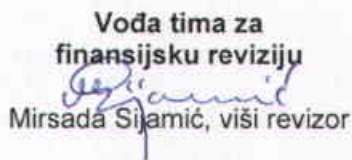 Vođa tima za
finansijsku reviziju
Mirsada Sijamić, viši revizor